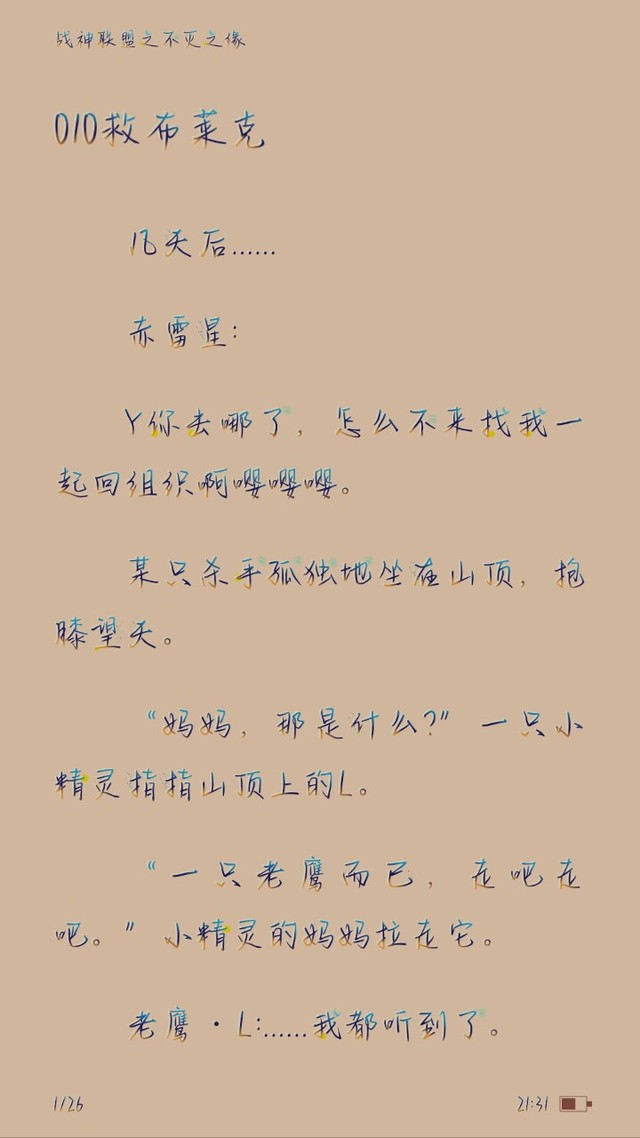 战神联盟之不灭之缘
010救布莱克
几天后……
赤雷星:
Y你去哪了，怎么不来找我一
起回组织啊嘤嘤嘤。
某只杀手孤独地坐在山顶，抱
膝望天。
“妈妈，那是什么?”一只小
精灵指指山顶上的L。
“一只老鹰而已，走吧走
吧。”小精灵的妈妈拉走它。
老鹰·L:……我都听到了。
1/26
21:31